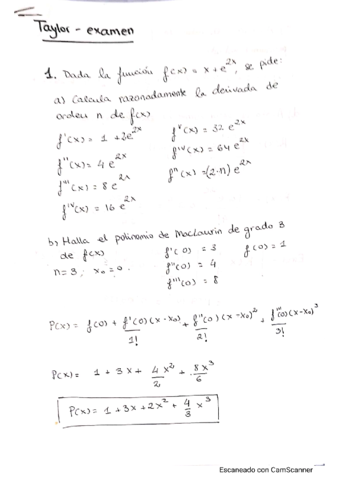 Taylor - examen
1. Dada la función f(x) = x + e^2x, se pide:
a) Calcula razonadamente la derivada de
orden n de f(x)
f'(x) = 1 + 2e^2x
f^v(x) = 32 e^2x
f''(x) = 4 e^2x
f^iv(x) = 64 e^2x
f'''(x) = 8 e^2x
f^n(x) = (2·n) e^2x
f^iv(x) = 16 e^2x
b) Halla el polinomio de MacLaurin de grado 3
de f(x)
f'(0) = 3
f(0) = 1
n = 3, x₀ = 0
f''(0) = 4
f'''(0) = 8
P(x) = f(0) + f'(0)(x-x₀)/1! + f''(0)(x-x₀)²/2! + f'''(0)(x-x₀)³/3!
P(x) = 1 + 3x + 4x²/2 + 8x³/6
P(x) = 1 + 3x + 2x² + 4/3 x³
Escaneado con CamScanner